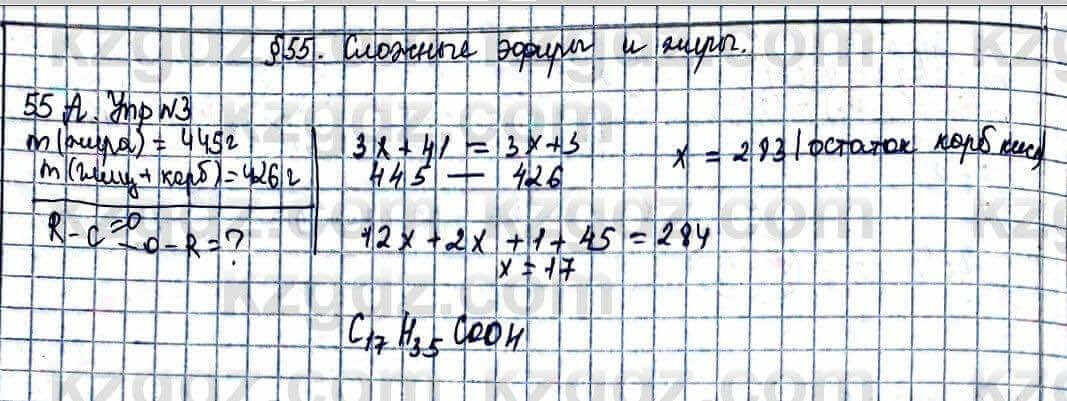 §55. Сложные эфиры и жиры.
55 А. Упр №3
m(жира) = 445г
m(глиц + карб) = 426г
R-C=O-O-R=?
3x+41 = 3x+3
445 — 426
x = 283 (остаток карб кисл)
12x+2x+1+45=284
x=17
C17H35COOH
kzgdz.com